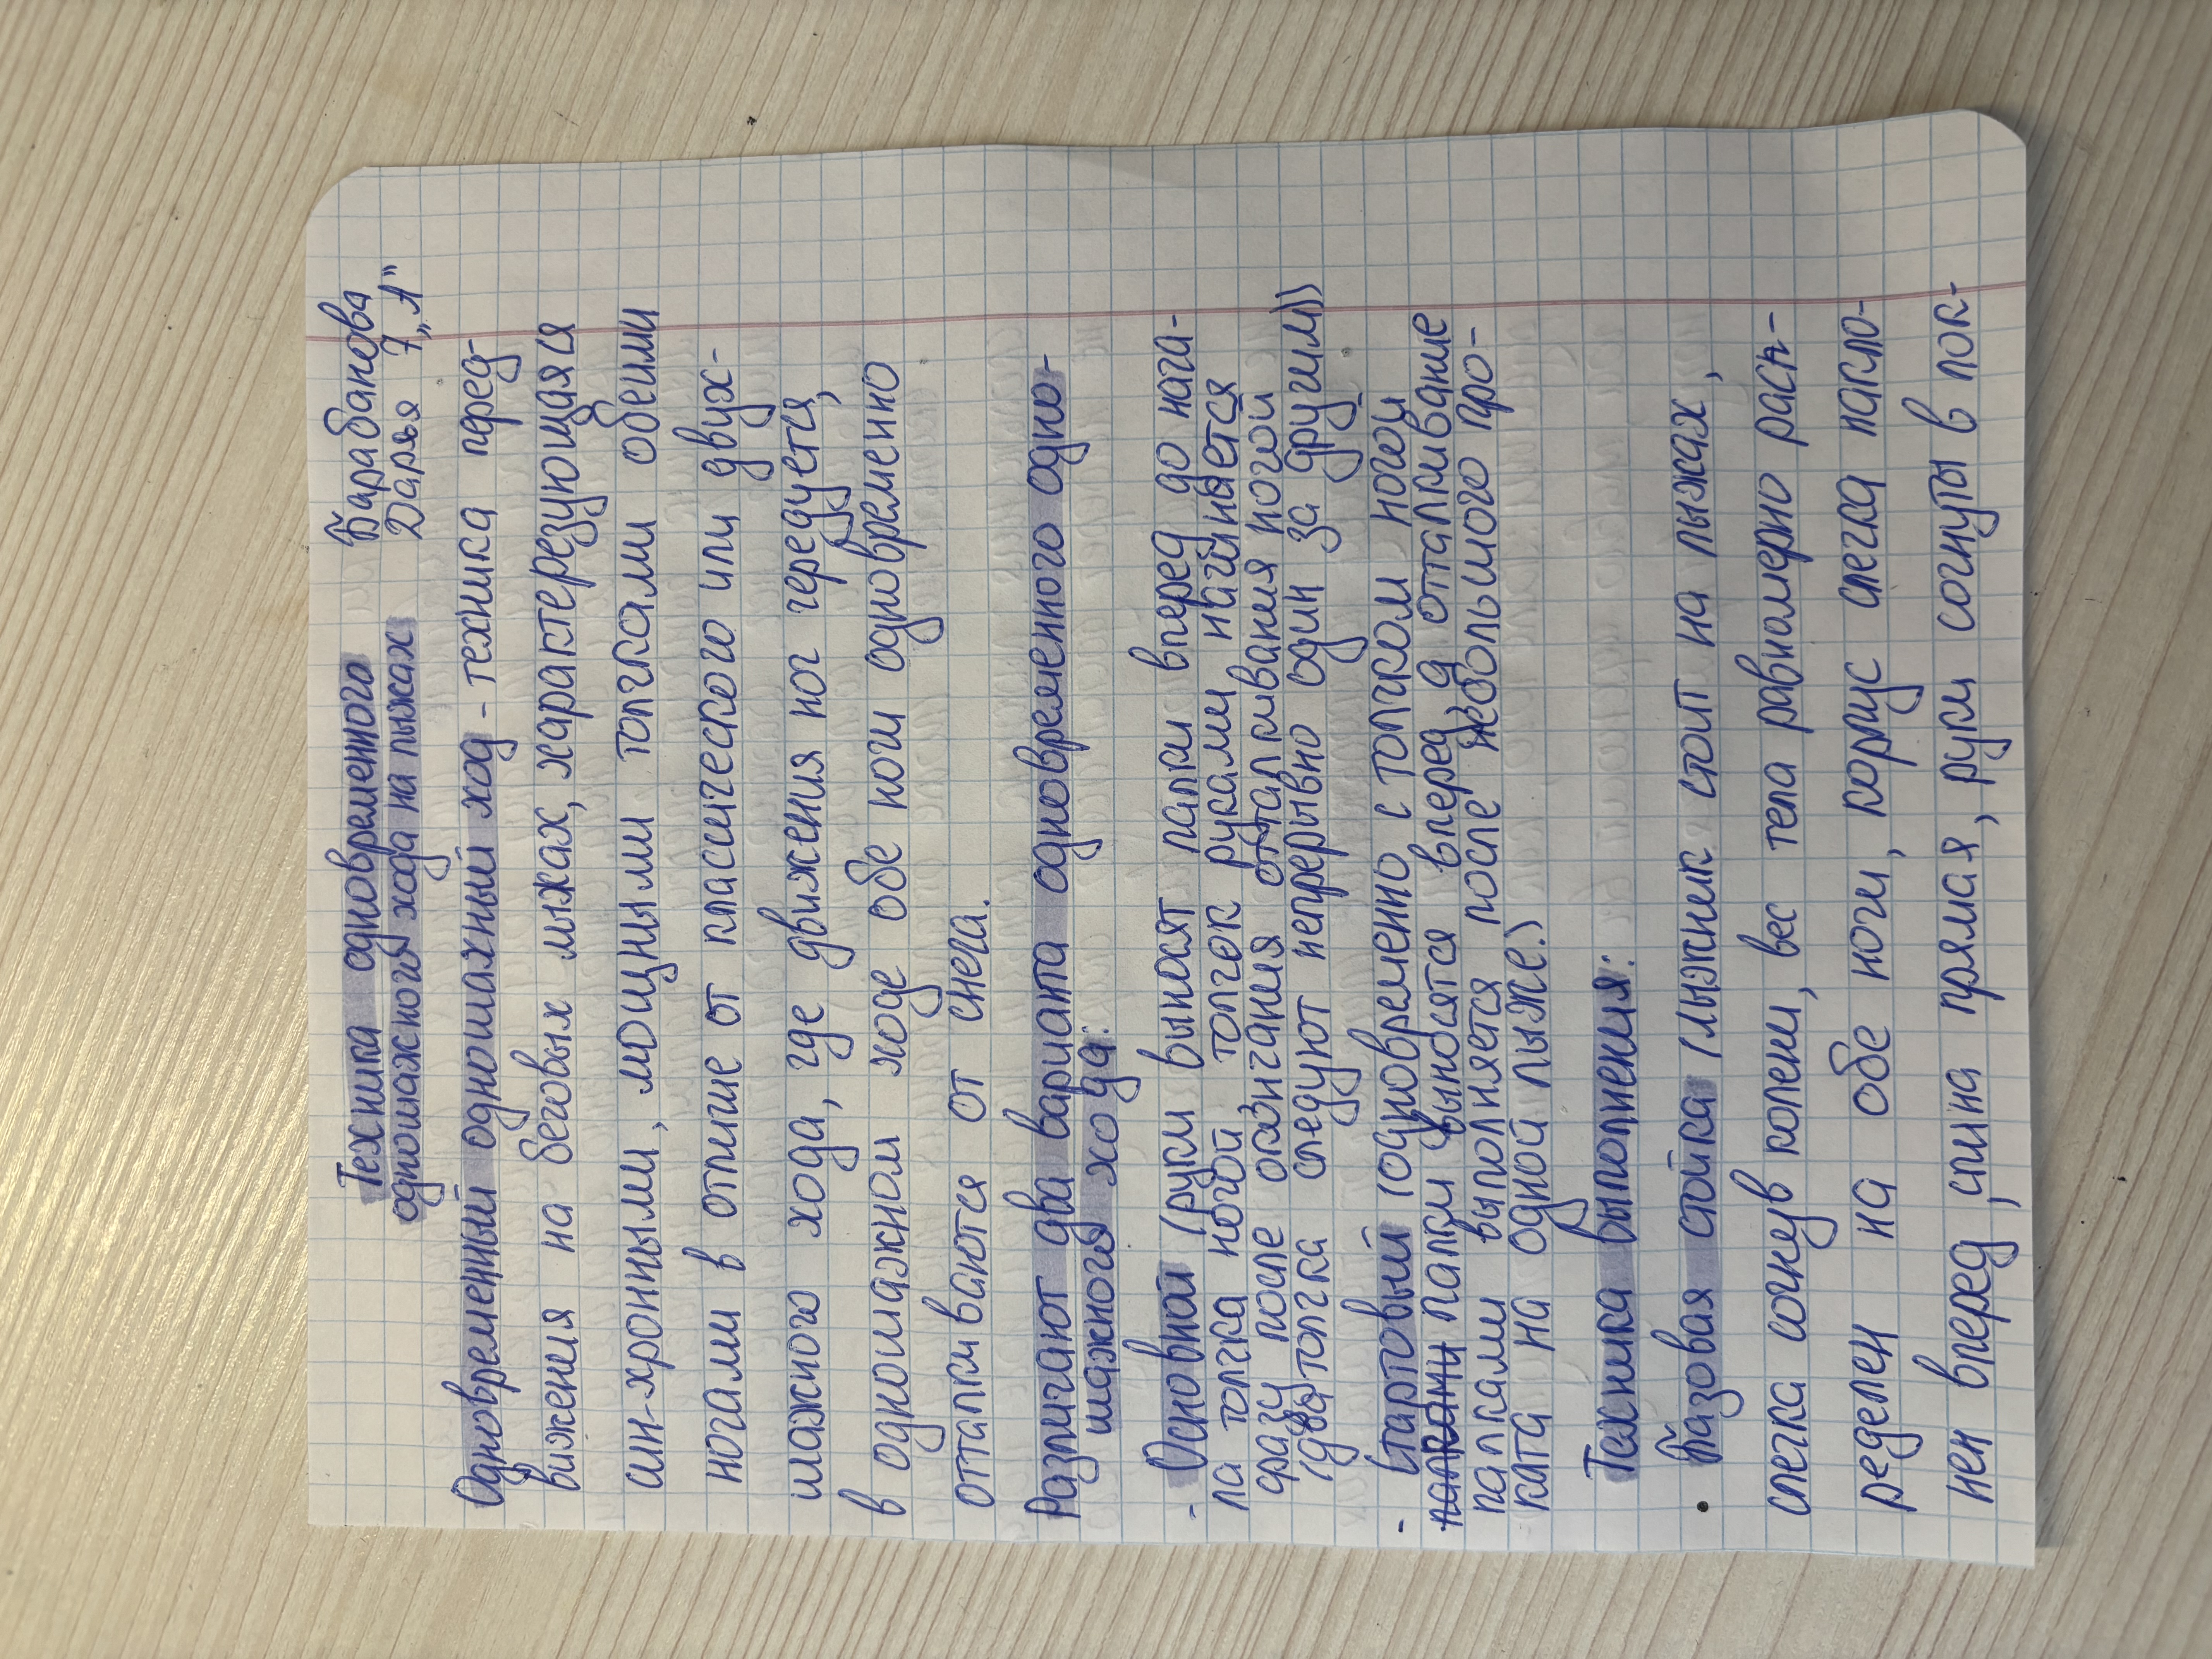 Техника одновременного
одношажного хода на лыжах
Барабанова
Дарья 7 „А"
Одновременный одношажный ход - техника перед-
вижения на беговых лыжах, характерезующаяся
син-хронными, мощными толчками обеими
ногами в отличие от классического или двух-
шажного хода, где движения ног чередуется,
в одношажном ходе обе ноги одновременно
отталкиваются от снега.
Различают два варианта одновременного одно-
шажного хода:
- Основной (руки выносят палки вперед до нача-
ла толчка ногой толчок руками начинается
сразу после окончания отталкивания ногой
(два толчка следуют непрерывно один за другим))
- Стартовый (одновременно с толчком ногой
палками палки выносятся вперед, а отталкивание
палками выполняется после небольшого про-
ката на одной лыже.)
Техника выполнения:
• Базовая стойка (лыжник стоит на лыжах,
слегка согнув колени, вес тела равномерно расп-
ределен на обе ноги, корпус слегка накло-
нен вперед, спина прямая, руки согнуты в лок-